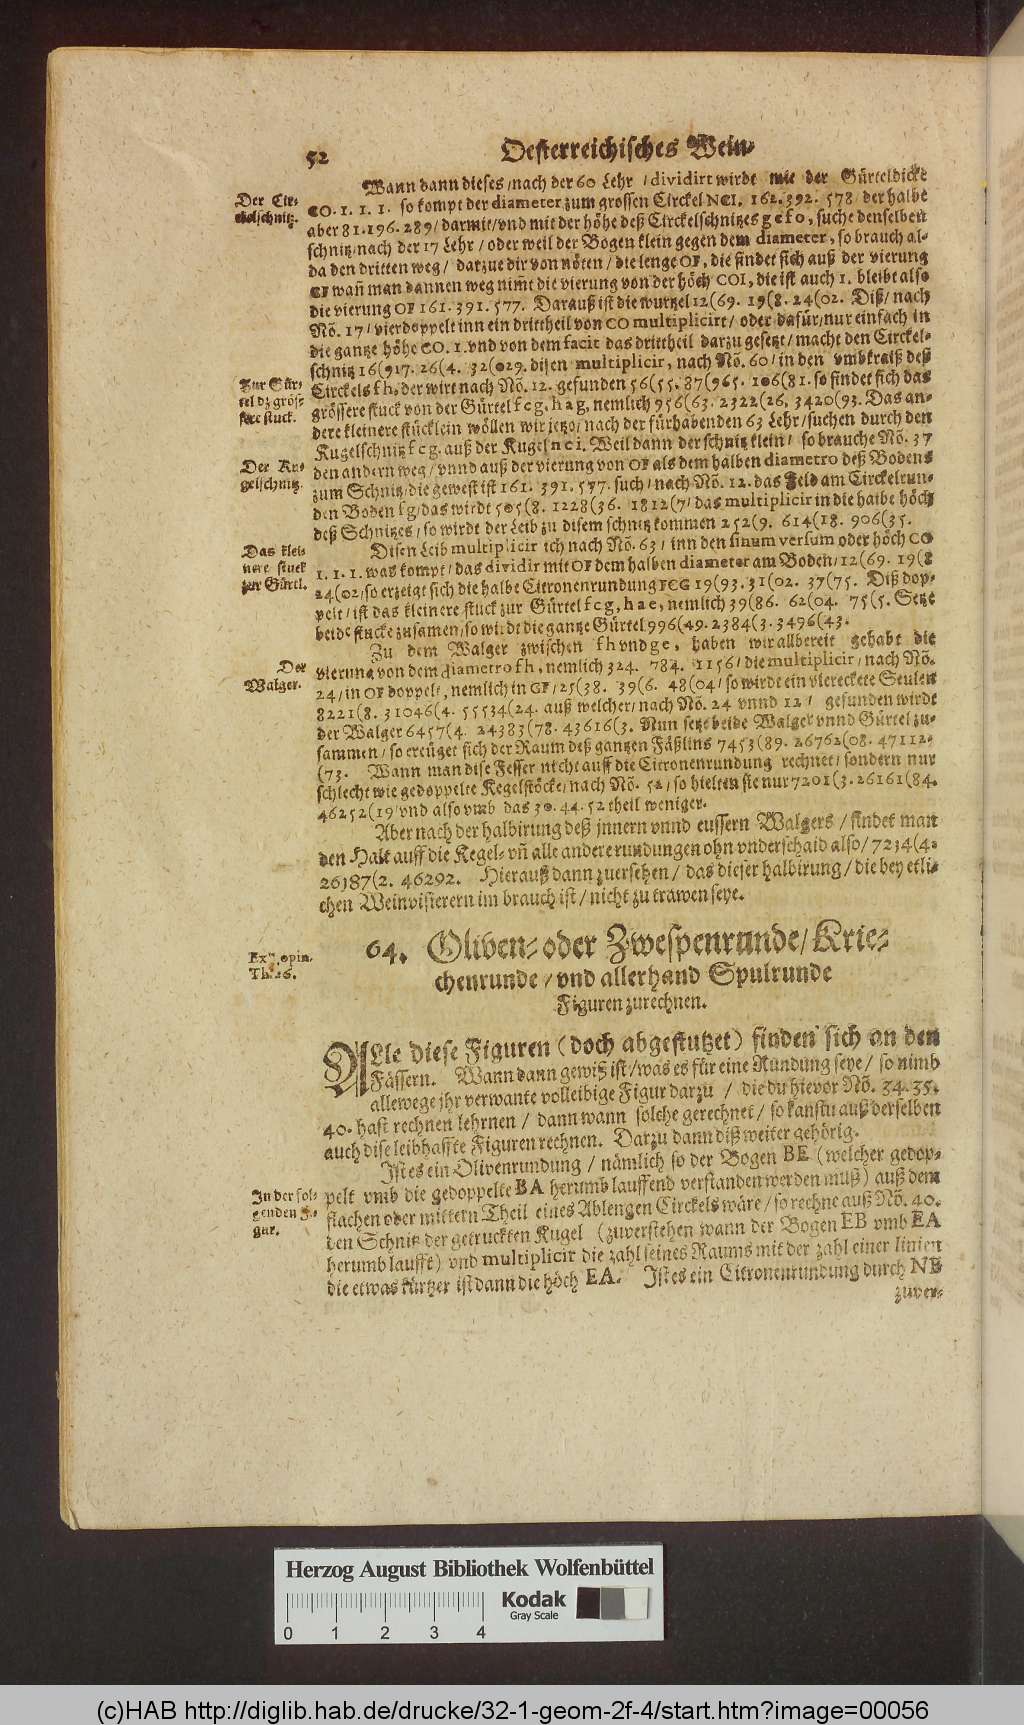 52 Oesterreichisches Wein-
Wann dann dieses/nach der 60 Lehr / dividirt wirdt mit der Gürteldicke
Der Cir-
ckelschnitz.
CO. 1. 1. 1. so kompt der diameter zum grossen Circkel NCI. 162. 392. 578/ der halbe
aber 81. 196. 289/ darmit/vnd mit der höhe deß Circkelschnitzes gefo, suche denselben
schnitz/nach der 17 Lehr/ oder weil der Bogen klein gegen dem diameter, so brauch al-
da den dritten weg/ darzue dir von nöten/ die lenge OF, die findet sich auß der vierung
CF wañ man dannen weg nim̃t die vierung von der höch COI, die ist auch 1. bleibt also
die vierung OF 161. 391. 577. Darauß ist die wurtzel 12(69. 19(8. 24(02. Diß/ nach
Nõ. 17/ vierdoppelt inn ein drittheil von CO multiplicirt/ oder dafür/nur einfach in
die gantze höhe CO. 1. vnd von dem facit das drittheil darzu gesetzt/ macht den Circkel-
schnitz 16(917. 26(4. 32(029. disen multiplicir, nach Nõ. 60/ in den vmbkraiß deß
Zur Gür-
tel dz grös-
sere stuck.
Circkels fh, der wirt nach Nõ. 12. gefunden 56(55. 87(965. 106(81. so findet sich das
grössere stuck von der Gürtel fcg, hag, nemlich 956(63. 2322(26. 3420(93. Das an-
dere kleinere stücklein wöllen wir jetzo/ nach der fürhabenden 63 Lehr/suchen durch den
Kugelschnitz fcg. auß der Kugel nci. Weil dann der schnitz klein/ so brauche Nõ. 37
Der Ku-
gelschnitz.
den andern weg/ vnnd auß der vierung von OF als dem halben diametro deß Bodens
zum Schnitz/die gewest ist 161. 391. 577. such/ nach Nõ. 12. das Feld am Circkelrun-
den Boden fg/das wirdt 505(8. 1228(36. 1812(7/ das multiplicir in die halbe höch
deß Schnitzes/ so wirdt der Leib zu disem schnitz kommen 252(9. 614(18. 906(35.
Das klei-
nere stuck
zur Gürtl.
Disen Leib multiplicir ich nach Nõ. 63/ inn den sinum versum oder höch CO
1. 1. 1. was kompt/ das dividir mit OF dem halben diameter am Boden/ 12(69. 19(8
24(02/so erzeigt sich die halbe Citronenrundung FCG 19(93. 31(02. 37(75. Diß dop-
pelt/ ist das kleinere stuck zur Gürtel fcg, hae, nemlich 39(86. 62(04. 75(5. Setze
beide stucke zusamen/so wirdt die gantze Gürtel 996(49. 2384(3. 3496(43.
Zu dem Walger zwischen fh vnd ge, haben wir allbereit gehabt die
Der
Walger.
vierung von dem diametro fh, nemlich 324. 784. 1156/ die multiplicir/ nach Nõ.
24/ in OF doppelt, nemlich in GF/ 25(38. 39(6. 48(04/ so wirdt ein viereckete Seulen
8221(8. 31046(4. 55534(24. auß welcher/ nach Nõ. 24 vnnd 12/ gefunden wirdt
der Walger 6457(4. 24383(78. 43616(3. Nun setze beide Walger vnnd Gürtel zu-
sammen/ so ereüget sich der Raum deß gantzen Fäßlins 7453(89. 26762(08. 47112-
(73. Wann man dise Fesser nicht auff die Citronenrundung rechnet/ sondern nur
schlecht wie gedoppelte Kegelstöcke/ nach Nõ. 52/ so hielten sie nur 7201(3. 26161(84.
46252(19 vnd also vmb das 30. 44. 52 theil weniger.
Aber nach der halbirung deß jnnern vnnd eussern Walgers/ findet man
den Halt auff die Kegel- vñ alle andere rundungen ohn vnderschaid also/ 7234(4.
26387(2. 46292. Hierauß dann zuersehen/ das dieser halbirung/ die bey etli-
chen Weinvisierern im brauch ist/ nicht zu trawen seye.
64. Oliven- oder Zwespenrunde/ Krie-
chenrunde/ vnd allerhand Spulrunde
Figuren zurechnen.
Th. 26.
ALle diese Figuren (doch abgestutzet) finden sich an den
Fässern. Wann dann gewiß ist/ was es für eine Rundung seye/ so nimb
allewege jhr verwante volleibige Figur darzu / die du hievor Nõ. 34. 35.
40. hast rechnen lehrnen/ dann wann solche gerechnet/ so kanstu auß derselben
auch dise leibhaffte Figuren rechnen. Darzu dann diß weiter gehörig.
Ist es ein Olivenrundung/ nämlich so der Bogen BE (welcher gedop-
In der fol-
genden Fi-
gur.
pelt vmb die gedoppelte BA herumb lauffend verstanden werden muß) auß dem
flachen oder mittern Theil eines Ablengen Circkels wäre/ so rechne auß Nõ. 40.
den Schnitz der getruckten Kugel (zuverstehen wann der Bogen EB vmb EA
herumb laufft) vnd multiplicir die zahl seines Raums mit der zahl einer linien
die etwas kürtzer ist dann die höch EA. Ist es ein Citronenrundung durch NB
zuver-
Herzog August Bibliothek Wolfenbüttel
Kodak
Gray Scale
0 1 2 3 4
(c)HAB http://diglib.hab.de/drucke/32-1-geom-2f-4/start.htm?image=00056